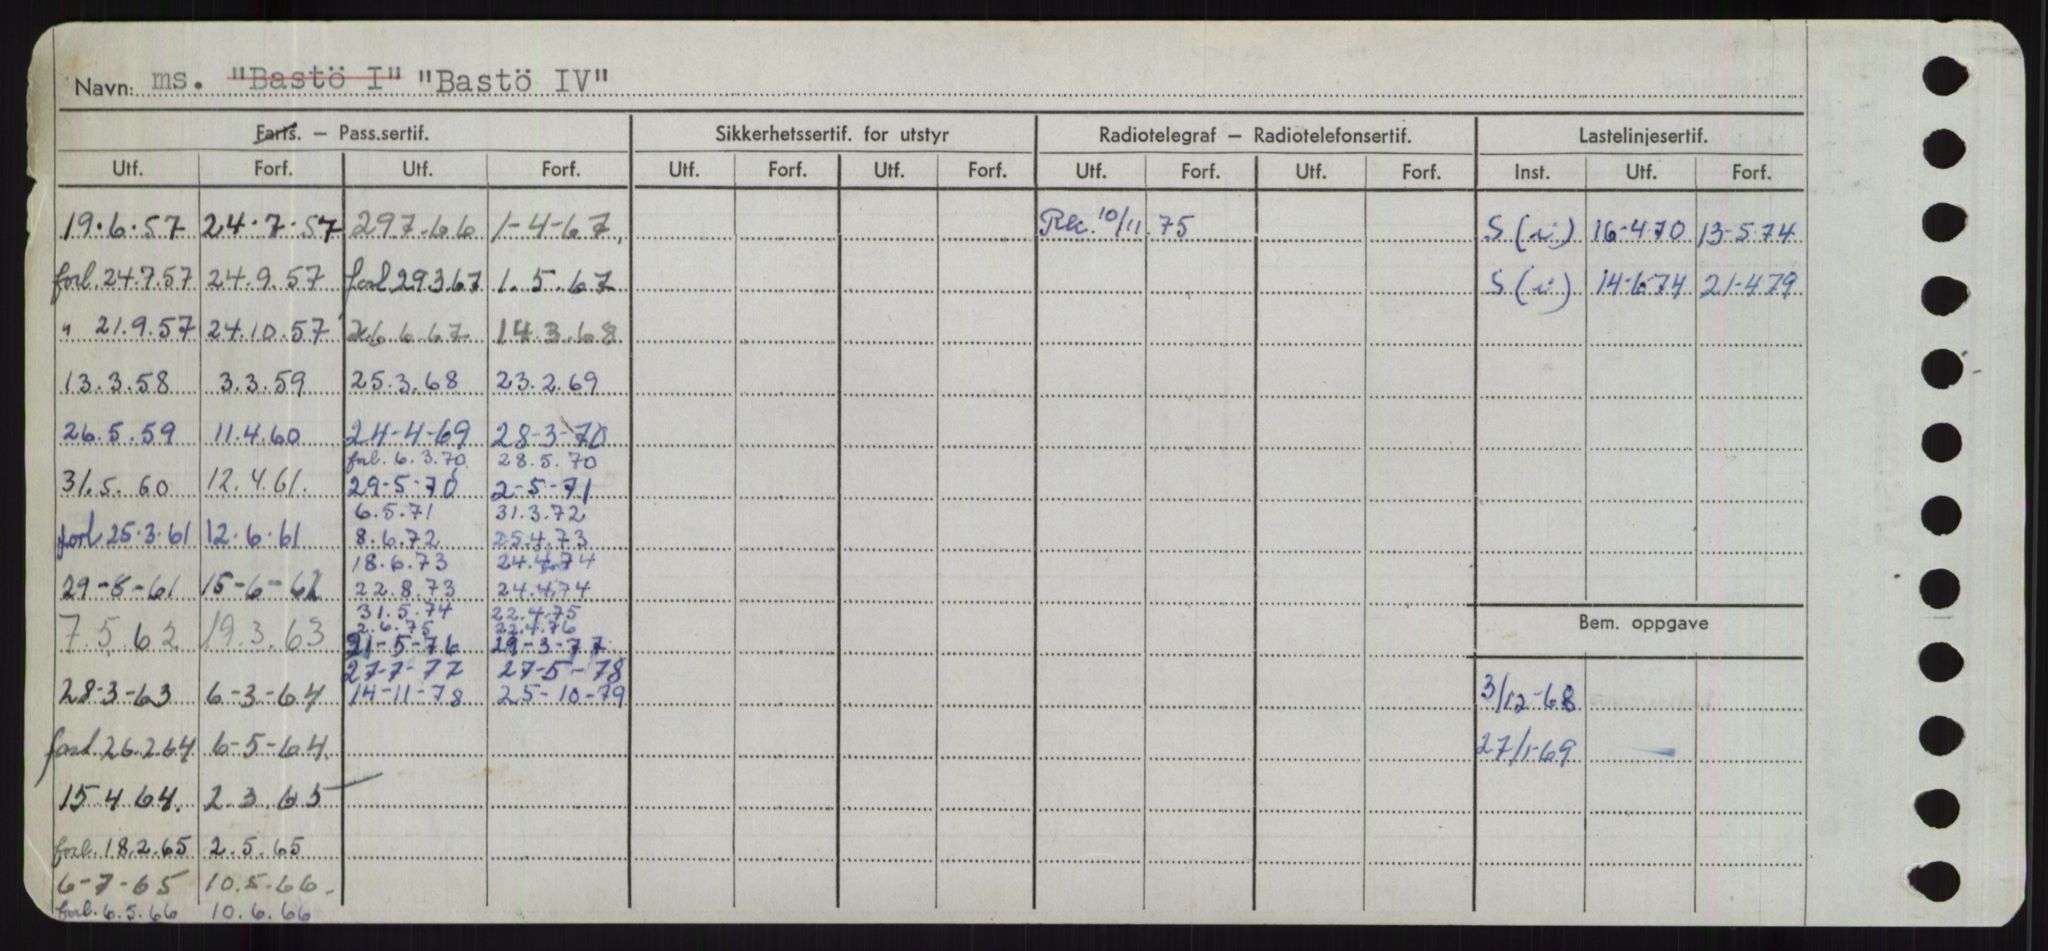 Navn: ms. "Bastö I" "Bastö IV"
Farts. – Pass.sertif. Sikkerhetssertif. for utstyr Radiotelegraf – Radiotelefonsertif. Lastelinjesertif.
Utf. Forf. Utf. Forf. Utf. Forf. Utf. Forf. Utf. Forf. Utf. Forf. Inst. Utf. Forf.
19.6.57 24.7.57 297.66 1-4-67. 10/11.75 S (i) 16-4.70 13-5.74
forl. 24.7.57 24.9.57 forl 29.3.67 1.5.67 S (i) 14-6.74 21-4.79
" 21.9.57 24.10.57 26.6.67 14.3.68
13.3.58 3.3.59 25.3.68 23.2.69
26.5.59 11.4.60 24-4-69 28-3-70
forl. 6.3.70 28.5.70
31.5.60 12.4.61. 29-5-70 2-5-71
6.5.71 31.3.72
forl 25.3.61 12.6.61 8.6.72 25.4.73
18.6.73 24.4.74
29-8-61 15-6-62 22.8.73 24.4.74
31.5.74 22.4.75
Bem. oppgave
7.5.62 19.3.63 2.6.75 22.4.76
21-5-76 29-3-77
27-7-77 27-5-78
28-3-63 6-3-64 14-11-78 25-10-79 3/12-68
forl. 26.2.64 6-5-64. 27/1-69
15.4.64. 2.3.65
forl. 18.2.65 2.5.65
6-7-65 10.5.66.
forl. 6.5.66 10.6.66